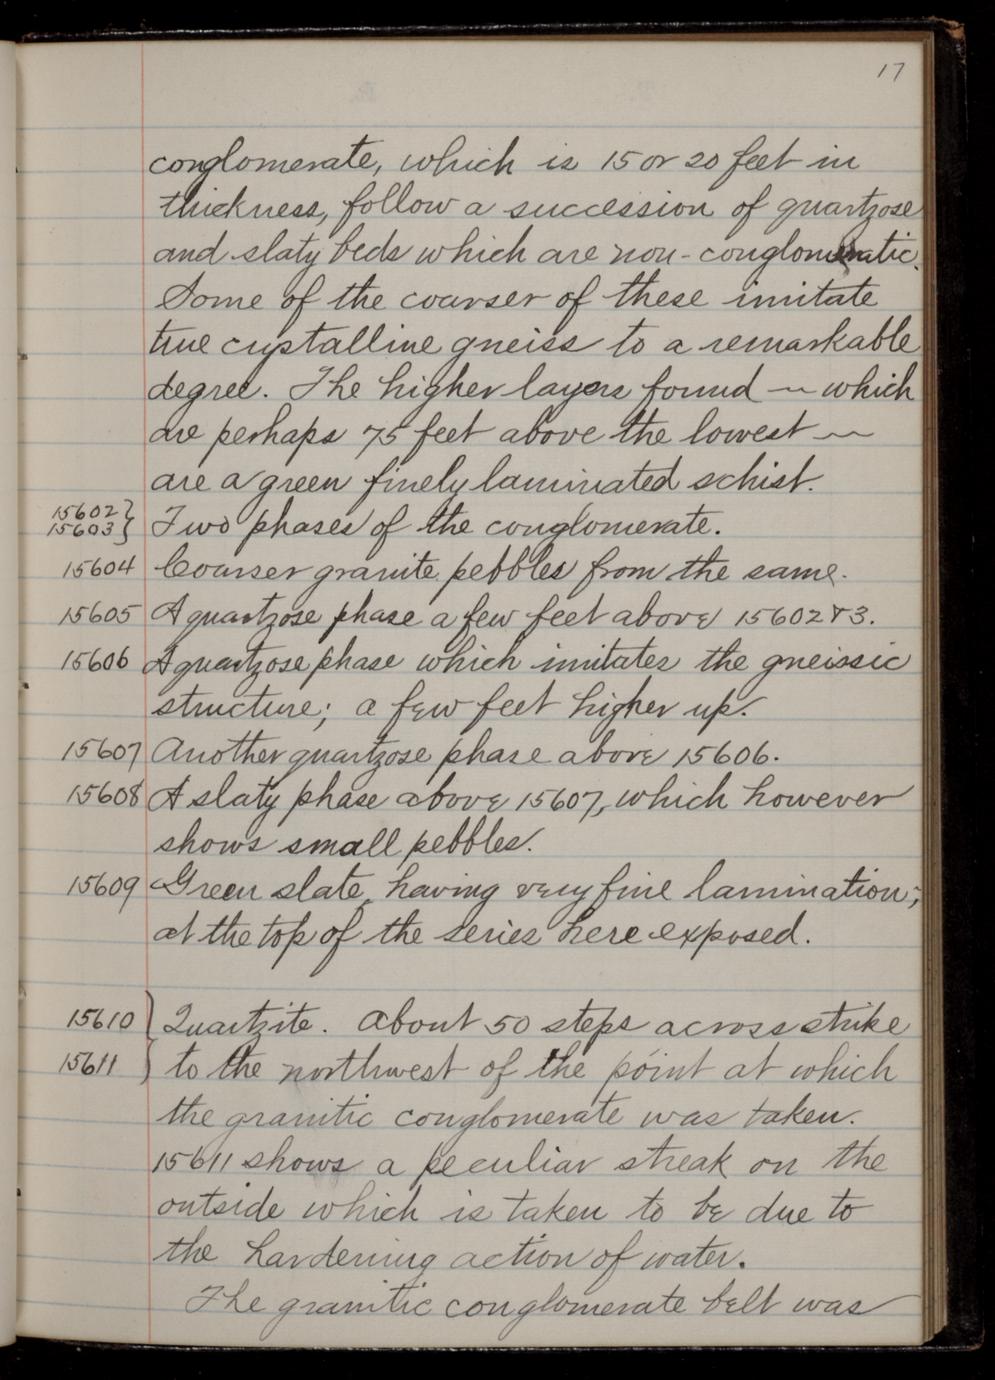 17
conglomerate, which is 15 or 20 feet in
thickness, follow a succession of quartzose
and slaty beds which are non-conglomeratic.
Some of the coarser of these imitate
true crystalline gneiss to a remarkable
degree. The higher layers found — which
are perhaps 75 feet above the lowest —
are a green finely laminated schist.
15602}
15603} Two phases of the conglomerate.
15604 Coarser granite pebbles from the same.
15605 A quartzose phase a few feet above 15602 & 3.
15606 A quartzose phase which imitates the gneissic
structure; a few feet higher up.
15607 Another quartzose phase above 15606.
15608 A slaty phase above 15607, which however
shows small pebbles.
15609 Green slate, having very fine lamination;
at the top of the series here exposed.
15610 } Quartzite. About 50 steps across strike
15611 } to the northwest of the point at which
the granitic conglomerate was taken.
15611 shows a peculiar streak on the
outside which is taken to be due to
the hardening action of water.
The granitic conglomerate belt was